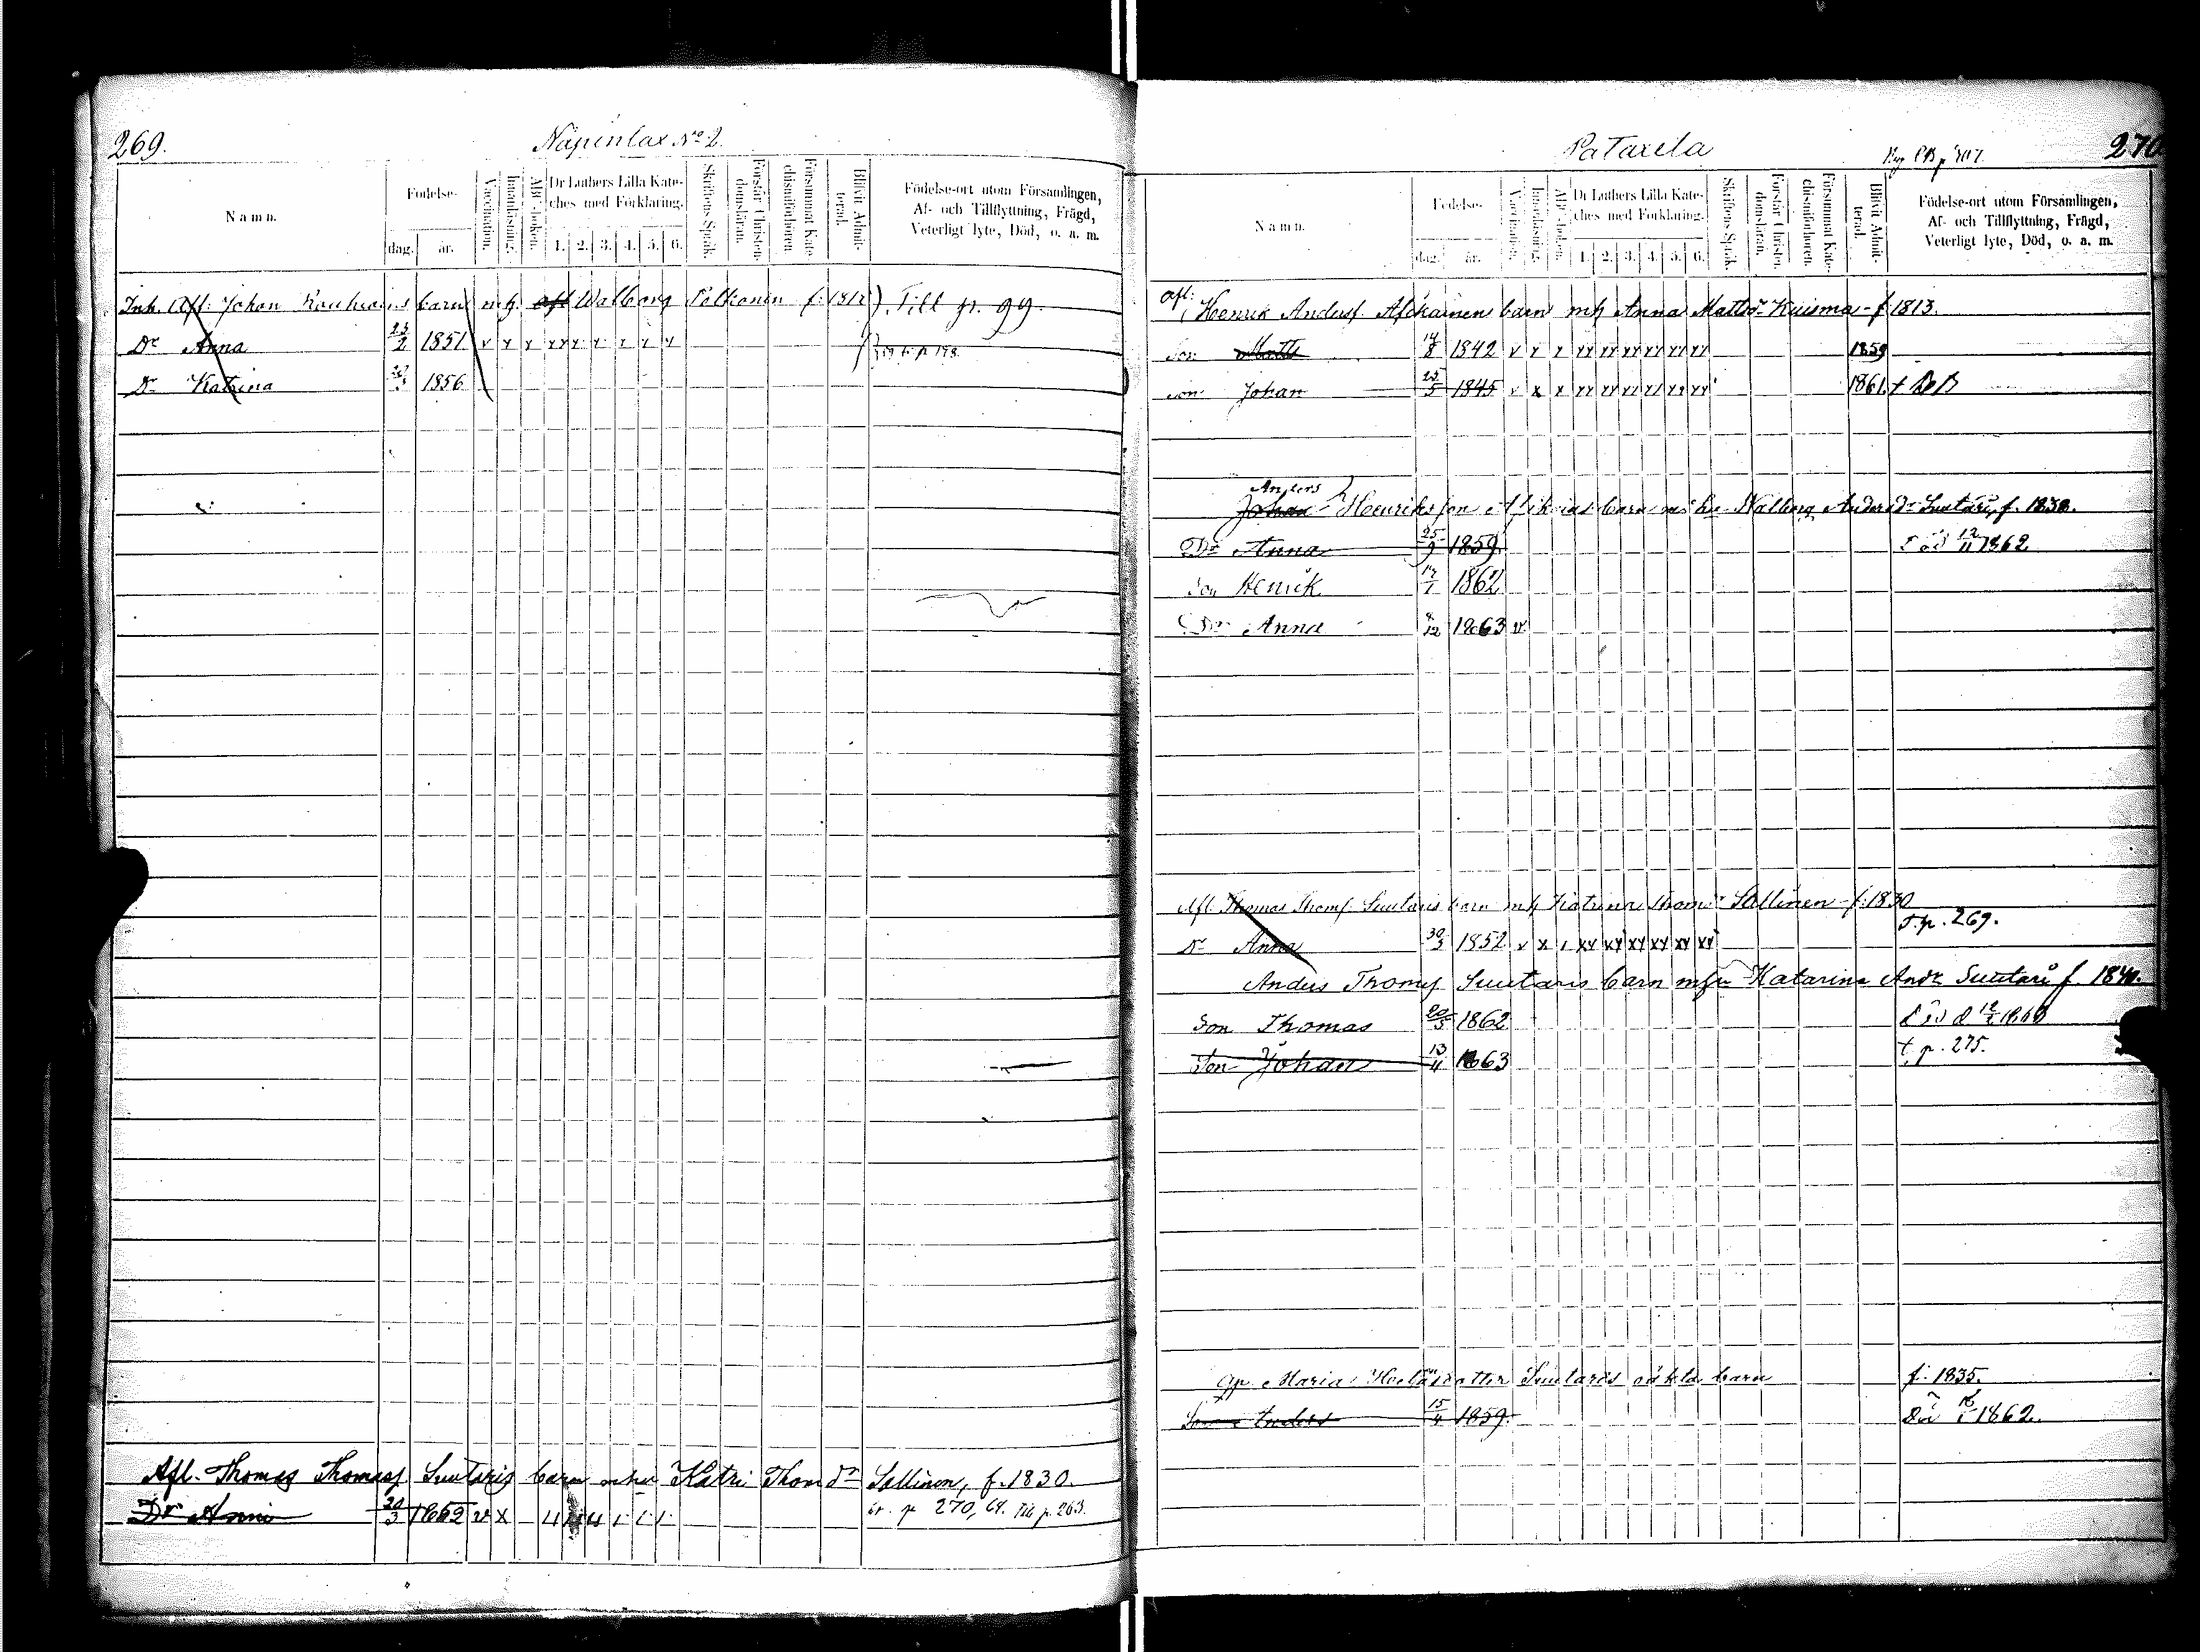 269.
Näpinlax No 2.
Namn.
Födelse-
dag.
år.
Vaccination.
Innanläsning.
ABC-boken.
Dr Luthers Lilla Kate-
ches med Förklaring.
1. 2. 3. 4. 5. 6.
Skriftens Språk.
Förstår Christen-
domsläran.
Försummat Kate-
chismiförhören.
Blifvit Admit-
terad.
Födelse-ort utom Församlingen,
Af- och Tillflyttning, Frägd,
Veterligt lyte, Död, o. a. m.
Inh. Afl. Johan barn mh afl Walborg Polkonin f. 1812 Till p. 99.
Dr Anna 23/2 1851 v x x xx x x x x x
Dr Katrina 1856
Afl. Thomas Thomasf Suutaris barn Katri Thom dr Sallinen, f. 1830.
Dr Anni 30/3 1852 v x p 270, 64. Till p. 263.
Pataxela
270
Namn.
Födelse-
dag.
år.
Vaccination.
Innanläsning.
ABC-boken.
Dr Luthers Lilla Kate-
ches med Förklaring.
1. 2. 3. 4. 5. 6.
Skriftens Språk.
Förstår Christen-
domsläran.
Försummat Kate-
chismiförhören.
Blifvit Admit-
terad.
Födelse-ort utom Församlingen,
Af- och Tillflyttning, Frägd,
Veterligt lyte, Död, o. a. m.
Afl. Henrik Andersf. barn mh Anna Mattsdr Kuisma f 1813.
Son Matts 14/8 1842 v x x xx xx xx xx xx xx 1859
Son Johan 25/5 1845 v x x xx xx xx xx xx xx 1861
Anders
Johan Henriksson barn Walborg Andersdr Suutari, f. 1838.
Dr Anna 25/9 1859 Död 12/11 1862
Son Henrik 17/1 1862
Dr Anna 1863 v
Afl. Thomas Thomf. Suutaris barn mh Katrina Thomdr Sallinen f. 1830
T. p. 269.
Dr Anna 30/3 1852 v x x xx xx xx xx xx xx
Anders Thomsf Suutaris barn Katarina Andr Suutari f. 1840.
Son Thomas 20/3 1862
t. p. 275.
Son Johan 13/11 1863
Maria Suutaris oäkta barn f. 1835.
Son Anders 15/4 1859 1862.